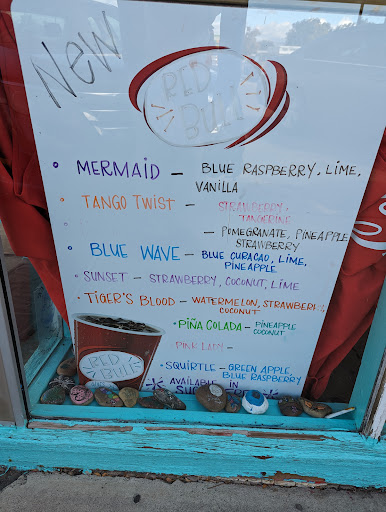 New
RED
BULL
• MERMAID – BLUE RASPBERRY, LIME,
VANILLA
• TANGO TWIST – STRAWBERRY,
TANGERINE
– POMEGRANATE, PINEAPPLE
STRAWBERRY
• BLUE WAVE – BLUE CURACAO, LIME,
PINEAPPLE
• SUNSET – STRAWBERRY, COCONUT, LIME
• TIGER'S BLOOD – WATERMELON, STRAWBERRY
COCONUT
• PIÑA COLADA – PINEAPPLE
COCONUT
• PINK LADY –
• SQUIRTLE – GREEN APPLE,
BLUE RASPBERRY
AVAILABLE IN
RED
BULL